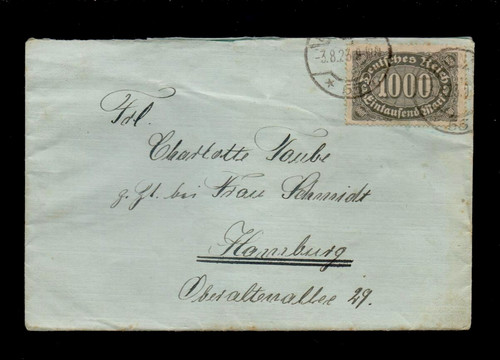 -3.8.23.
Deutsches Reich
1000
Eintausend Mark
Frl.
Charlotte Taube
z. Zt. bei Frau Schmidt
Hamburg
Oberaltenallee 29.